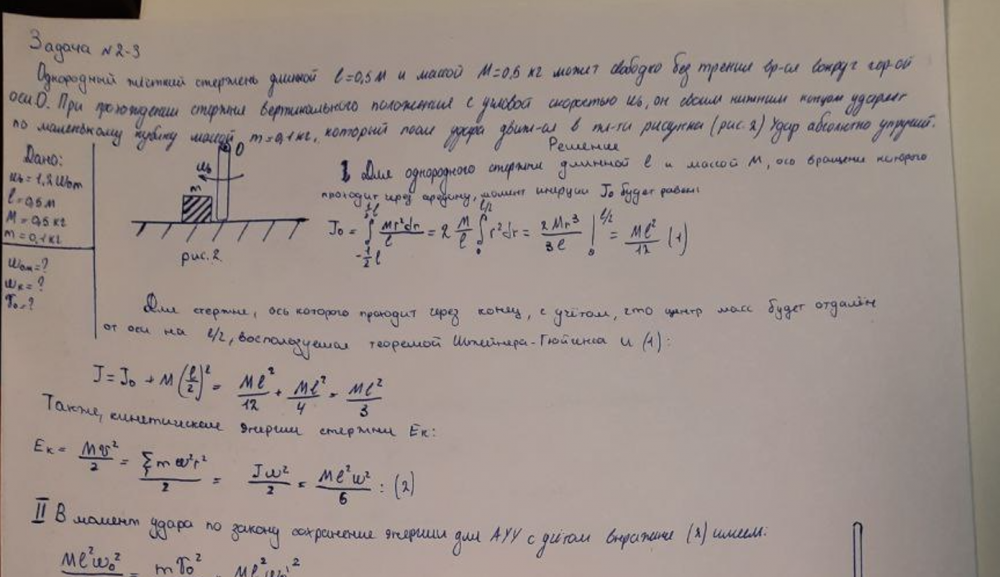 Задача №2-3
Однородный жёсткий стержень длиной l=0,5м и массой M=0,5 кг может свободно без трения вр-ся вокруг гор-ой
оси O. При прохождении стержня вертикального положения с угловой скоростью ω₀, он своим нижним концом ударяет
по маленькому кубику массой m=0,1кг, который после удара движ-ся в пл-ти рисунка (рис.2) Удар абсолютно упругий.
Дано:
ω₀=1,2ω₀m
l=0,5м
M=0,5кг
m=0,1кг
ω₀m=?
ωк=?
v₀=?
O
ω₀
m
рис.2
Решение
I Для однородного стержня длинной l и массой M, ось вращения которого
проходит через середину, момент инерции J₀ будет равен:
J₀ = ∫_{-1/2 l}^{1/2 l} Mr²dr/l = 2 M/l ∫_0^{l/2} r²dr = 2Mr³/3l |_0^{l/2} = Ml²/12 (1)
Для стержня, ось которого проходит через конец, с учётом, что центр масс будет отдалён
от оси на l/2, воспользуемся теоремой Штейнера-Гюйгенса и (1):
J = J₀ + M(l/2)² = Ml²/12 + Ml²/4 = Ml²/3
Также, кинетическая энергии стержня Eк:
Eк = Mv²/2 = ∑mω²r²/2 = Jω²/2 = Ml²ω²/6 : (2)
II В момент удара по закону сохранение энергии для АУУ с учётом выражение (2) имеем:
Ml²ω₀² = mv₀² Ml²